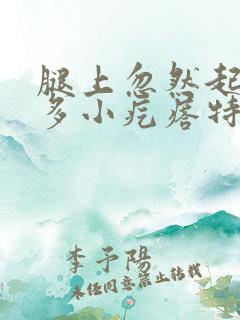 腿上忽然起
多小疙瘩特
李予陽
未任同意禁止转载